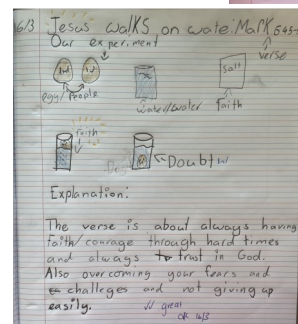 6/3 Jesus walks on water Mark 6:45-
Our experiment
verse
Salt
egg/people
water/water
faith
faith
Doubt
Explanation:
The verse is about always having
faith/courage through hard times
and always to trust in God.
Also overcoming your fears and
challeges and not giving up
easily.
great